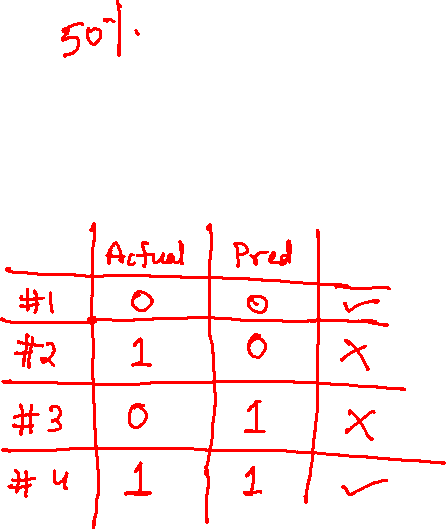 50%.
Actual Pred
#1 0 0 ✓
#2 1 0 X
#3 0 1 X
#4 1 1 ✓